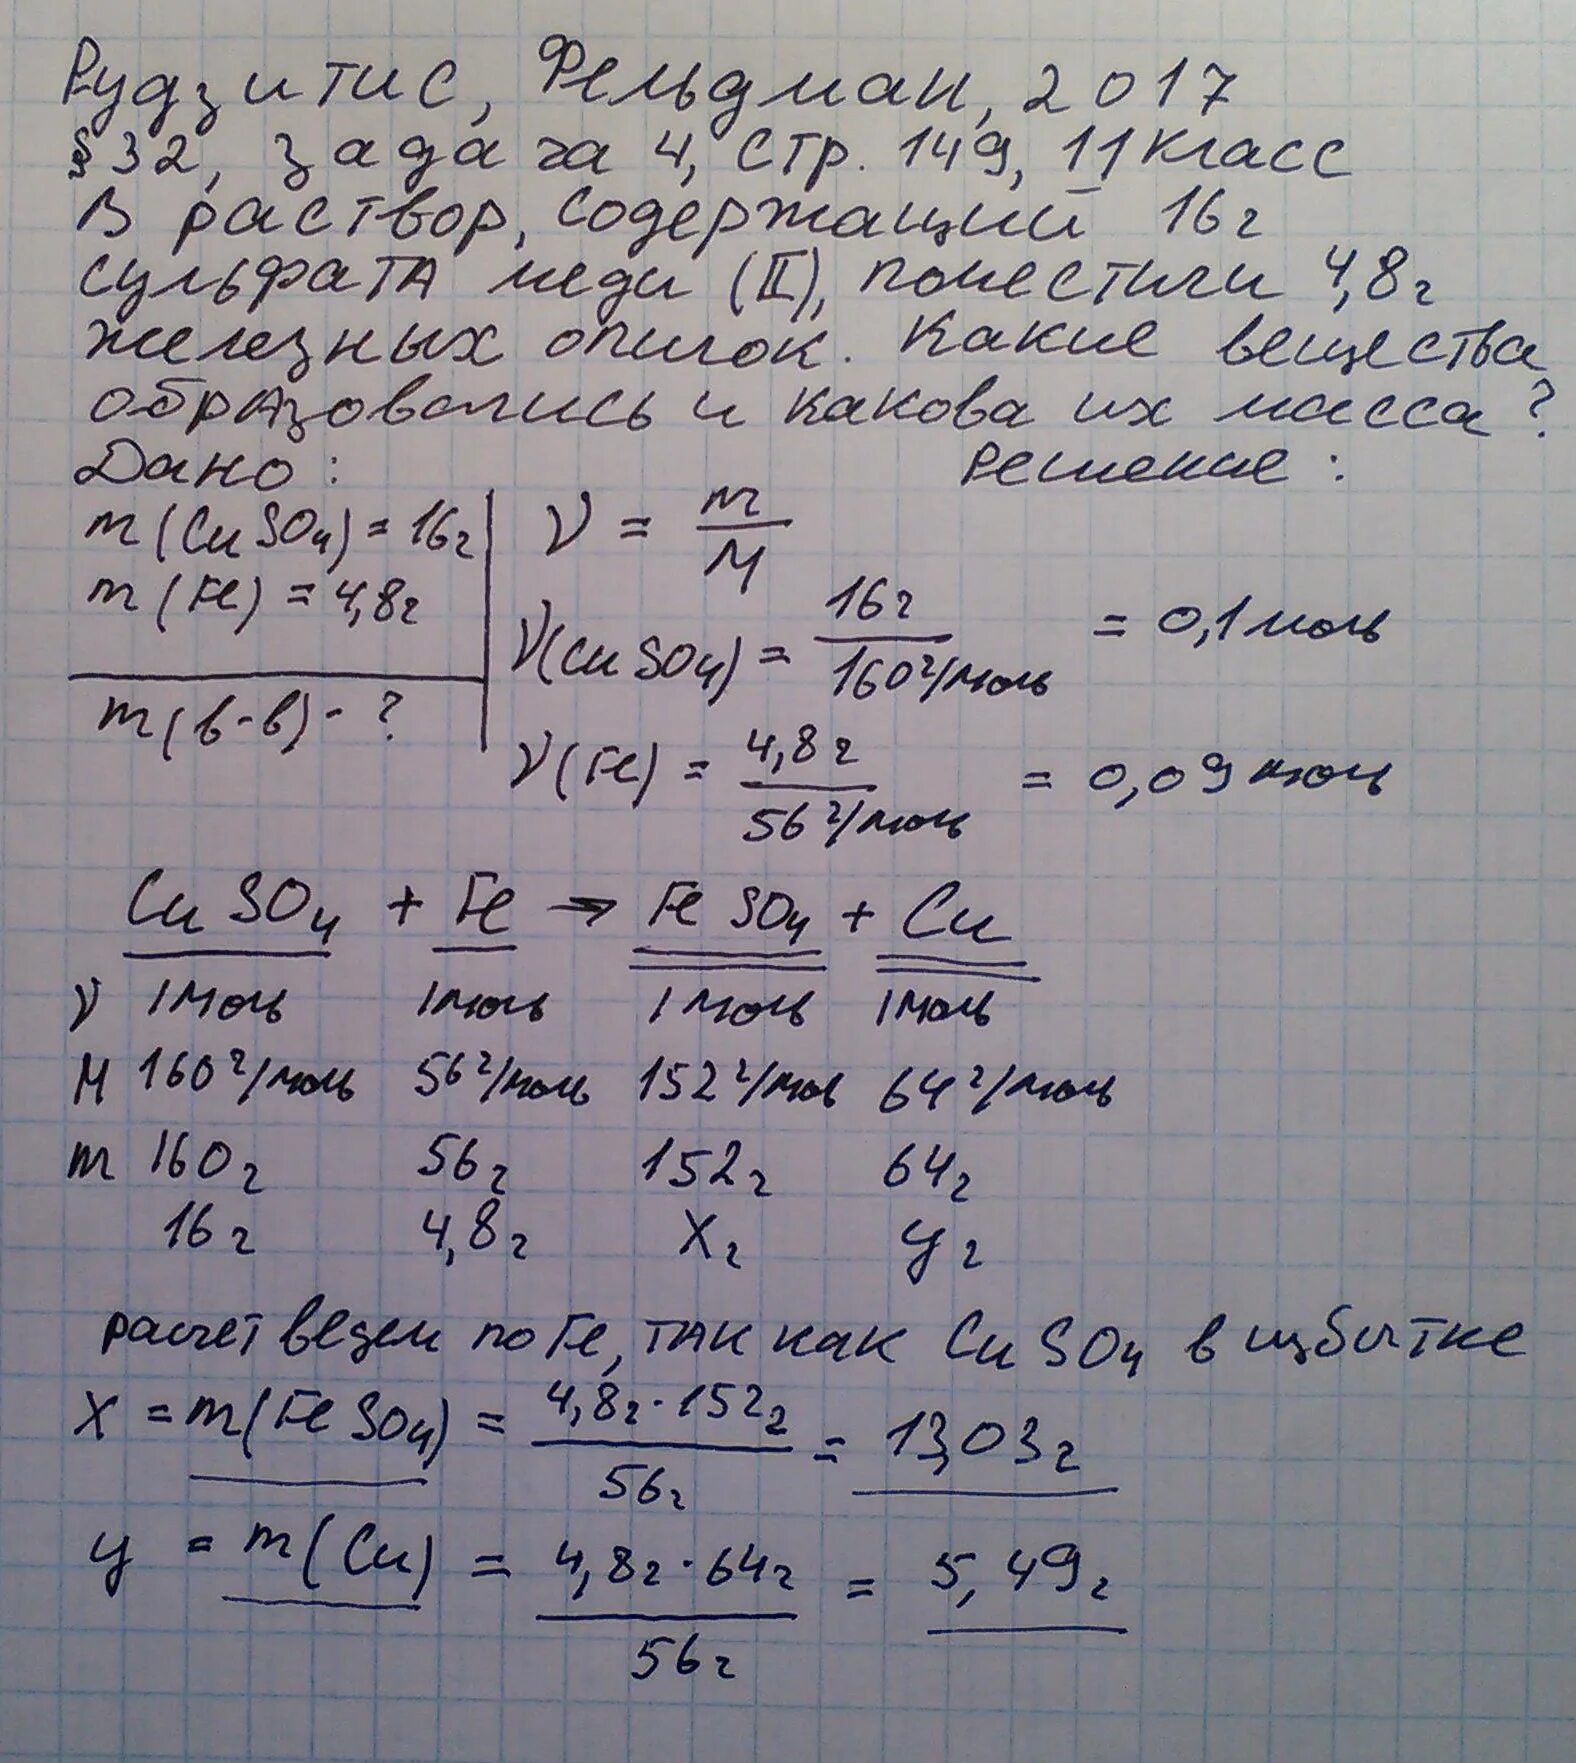 Рудзитис, Фельдман, 2017
§ 32, задача 4, стр. 149, 11 класс
В раствор, содержащий 16г
сульфата меди (II), поместили 4,8г
железных опилок. Какие вещества
образовались и какова их масса?
Дано: Решение:
m (CuSO₄) = 16г
m (Fe) = 4,8г
m (в-в) - ?
ν = m/M
ν(CuSO₄) = 16г / 160г/моль = 0,1 моль
ν(Fe) = 4,8г / 56г/моль = 0,09 моль
CuSO₄ + Fe → FeSO₄ + Cu
ν 1 моль 1 моль 1 моль 1 моль
M 160г/моль 56г/моль 152г/мол 64г/моль
m 160г 56г 152г 64г
16г 4,8г Xг yг
расчет ведем по Fe, так как CuSO₄ в избытке
X = m(FeSO₄) = 4,8г · 152г / 56г = 13,03г
y = m(Cu) = 4,8г · 64г / 56г = 5,49г